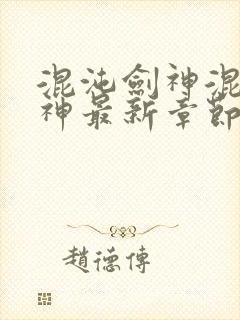 混沌劍神混
神最新章節
趙德傳